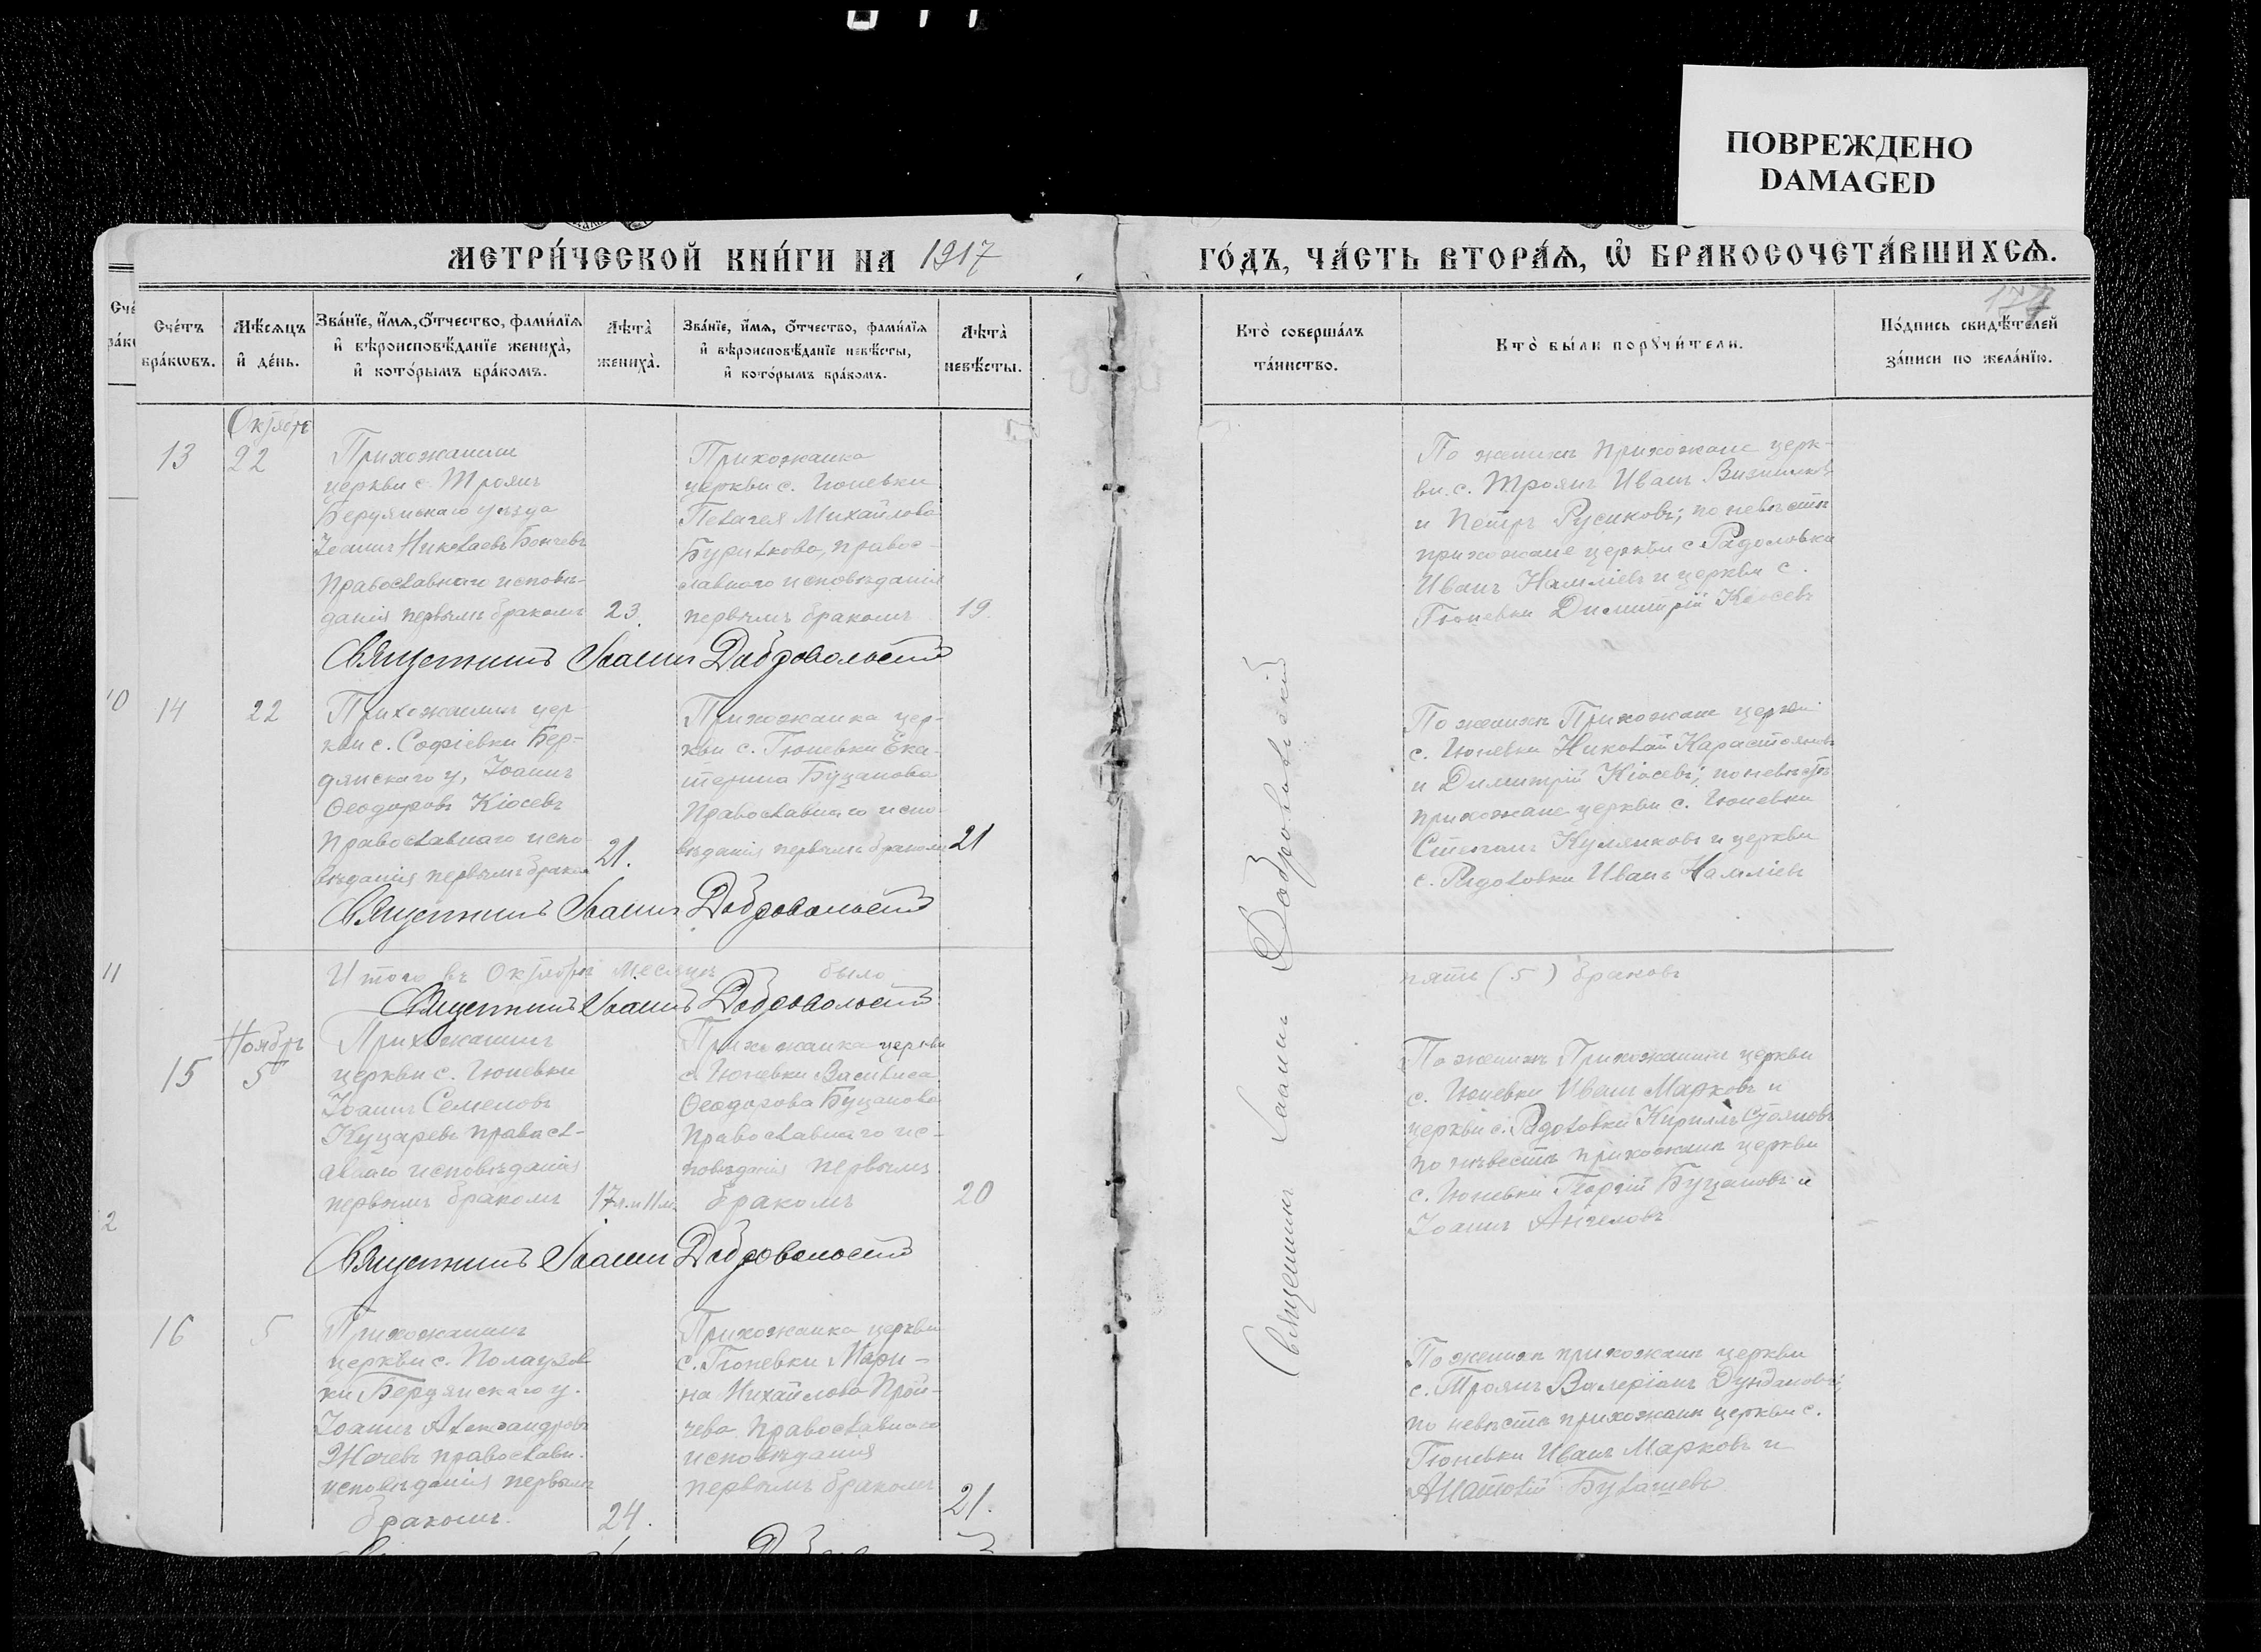 ПОВРЕЖДЕНО
DAMAGED
МЕТРИ́ЧЕСКОЙ КНИ́ГИ НА 1917
ГО́ДЪ, ЧА́СТЬ ВТОРА́Ѧ, Ѽ БРАКОСОЧЕТА́ВШИХСѦ.
Сче́тъ
бра́кѡвъ.
Мѣ́сяцъ
и҆ де́нь.
Зва́нїе, и҆́мѧ, ѻ҆́тчество, фами́лїѧ
и҆ вѣроисповѣ́данїе жениха̀,
и҆ кото́рымъ бра́комъ.
Лѣта̀
жениха̀.
Зва́нїе, и҆́мѧ, ѻ҆́тчество, фами́лїѧ
и҆ вѣроисповѣ́данїе невѣ́сты,
и҆ кото́рымъ бра́комъ.
Лѣта̀
невѣ́сты.
Кто̀ соверша́лъ
та́инство.
Кто̀ бы́ли порꙋчи́тели.
По́дпись свидѣ́телей
за́писи по жела́нїю.
Октябрь
13
22
Прихожанинъ
церкви с. Троянъ
Бердянскаго уѣзда
Іоаннъ Николаевъ Бончевъ
Православнаго исповѣ-
данія первымъ бракомъ
23.
Прихожанка
церкви с. Гюневки
Пелагея Михайлова
Бурлкова, правос-
лавного исповѣданія
первымъ бракомъ
19.
По женихѣ Прихожане церк-
ви с. Троянъ Иванъ
и Петръ Русиковъ; по невѣстѣ
прихожане церкви с. Радоловки
Иванъ Намліевъ и церкви с.
Гюневки Димитрій Кіосевъ
Священникъ Іоаннъ Добровольскій
14
22
Прихожанинъ цер-
кви с. Софіевки Бер-
дянскаго у. Іоаннъ
Ѳеодоровъ Кіосевъ
Православнаго испо-
вѣданія первымъ браком
21.
Прихожанка цер-
кви с. Гюневки Ека-
терина Буцанова
Православнаго испо-
вѣданія первымъ бракомъ
21
По женихѣ Прихожане церкви
с. Гюневки Николай Карастояновъ
и Димитрій Кіосевъ; по невѣстѣ
прихожане церкви с. Гюневки
Степанъ Кулянковъ и церкви
с. Радоловки Иванъ Намліевъ
Священникъ Іоаннъ Добровольскій
Итого въ Октябрѣ месяцѣ было
пять (5) браковъ
Священникъ Іоаннъ Добровольскій
Ноябрь
15
5
Прихожанинъ
церкви с. Гюневки
Іоаннъ Семеновъ
Куцаревъ правосл-
авнаго исповѣданія
первымъ бракомъ
17 л. и 11 м.
Прихожанка церкви
с. Гюневки Василиса
Ѳеодорова Буцанова
Православнаго ис-
повѣданія первымъ
бракомъ
20
По женихѣ Прихожанинъ церкви
с. Гюневки Иванъ Марковъ и
церкви с. Радоловки Кириллъ Стояновъ
по невѣстѣ прихожане церкви
с. Гюневки Георгій Буцановъ и
Іоаннъ Ангеловъ
Священникъ Іоаннъ Добровольскій
16
5
Прихожанинъ
церкви с. Полаузов
ки Бердянскаго у.
Іоаннъ Александровъ
Жечевъ православн.
исповѣданія первымъ
бракомъ.
24.
Прихожанка церкви
с. Гюневки Мари-
на Михайлова Прой-
чева Православнаго
исповѣданія
первымъ бракомъ
21.
По женихѣ прихожане церкви
с. Троянъ Валеріанъ Дундановъ;
по невѣстѣ прихожане церкви с.
Гюневки Иванъ Марковъ и
Анатолій Булашевъ
Священникъ Іоаннъ Добровольскій
10
11
2